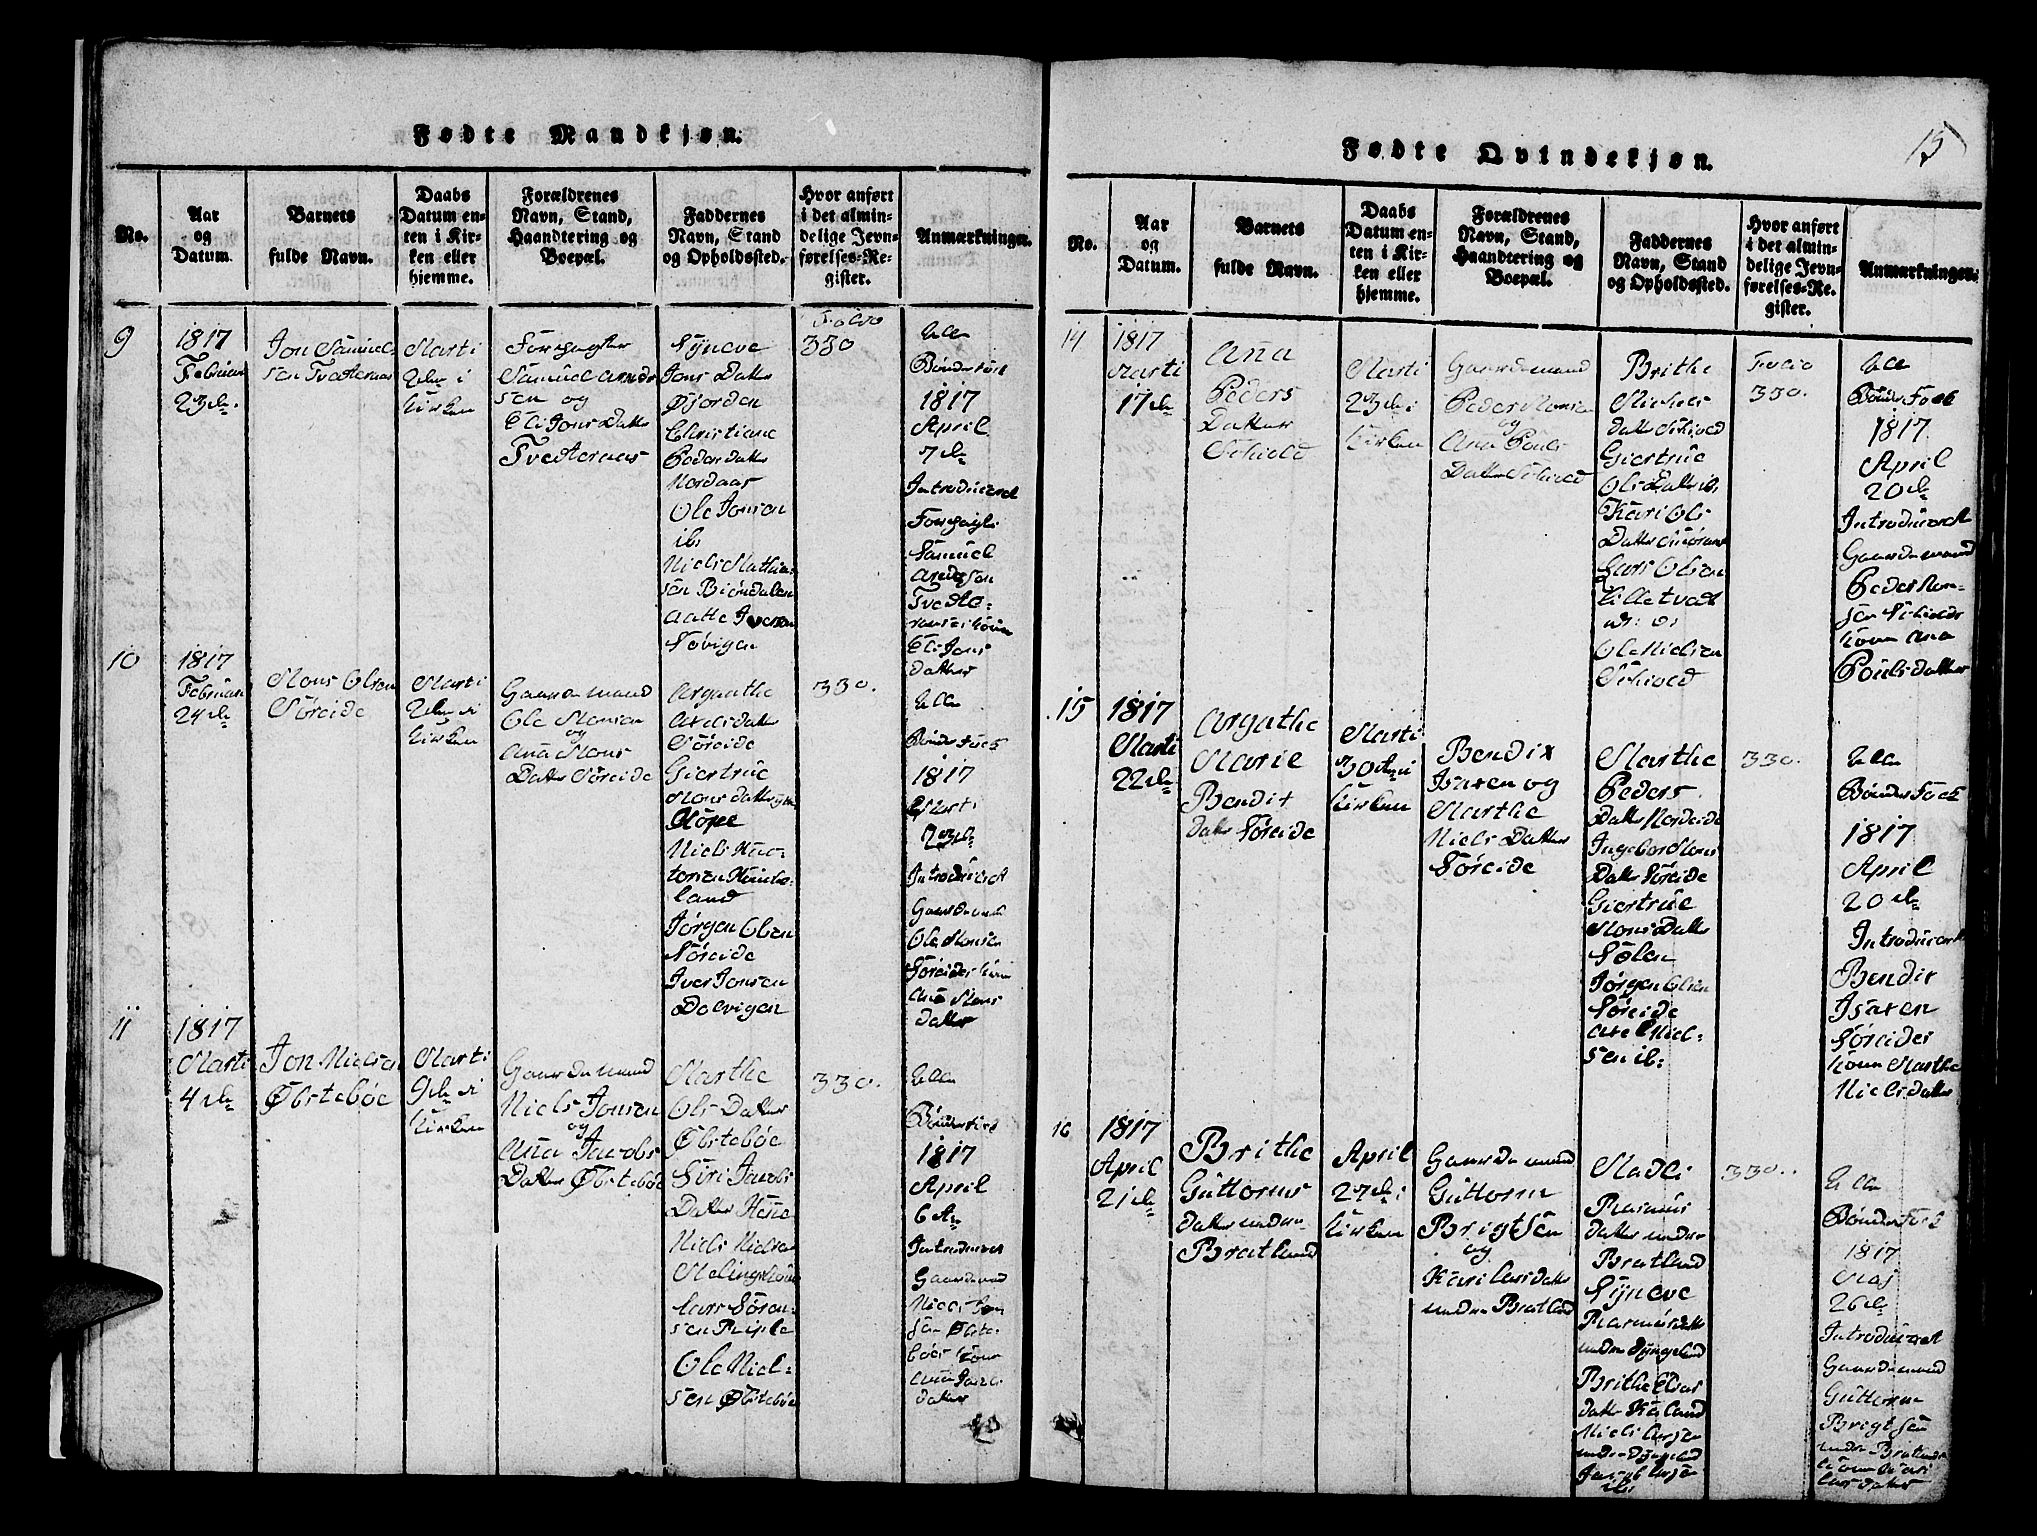 Fødte Mandkjøn.
No.
Aar
og
Datum.
Barnets
fulde Navn.
Daabs
Datum en-
ten i Kir-
ken eller
hjemme.
Forældrenes
Navn, Stand,
Haandtering og
Boepæl.
Faddernes
Navn, Stand
og Opholdssted.
Hvor anført
i det almin-
delige Jevn-
førelses-Re-
gister.
Anmærkninger.
9
1817
Februar
23de
Jon Samuel-
sen Tvedteraas
Marti
2den i
Kirken
Samuel
sen og
Eli Jons Datter
Tvedteraas
Syneve
Jons Datter
Øjorden
Christiane
Peders datter
Nordaas
Ole Jonsen
ib:
Niels Mathia-
sen Biørndalen
Aatte Iversen
Søvigen
Folio
330
Alle
Bønder Folk
1817
April
7de
Introduceret
Samuel
Tvedte-
Eli Jons
datter
10
1817
Februar
24de
Mons Olsen
Søreide
Marti
2den i
Kirken
Gaardemand
Ole Monsen
og
Ana Mons
Datter Søreide
Argathe
Axelsdatter
Søreide
Giertrue
Mons datter
Hope
Niels
land
Jørgen Olsen
Søreide
Iver Jonsen
Dolvigen
330.
Alle
Bønder Folk
1817
Marti
23de
Introduceret
Gaardemand
Ole Monsen
Søreides Kone
Ana Mons
datter
11
1817
Marti
4de
Jon Nielsen
Øbstebøe
Marti
9de i
Kirken
Gaardemand
Niels Jonsen
og
Ana Jacobs
Datter Øbstebøe
Marthe
Ols Datter
Øbstebøe
Siri Jacobs
Datter
Niels Nielsen
Lars Søren-
sen
Ole Niel-
sen Øbstebøe
330.
Alle
Bønderfolk
1817
April
6te
Introduceret
Gaardemand
Niels Jon
sen Øbste-
bøes Kone
Ana Jacobs
datter
15
Fødte Qvindekjøn.
No.
Aar
og
Datum.
Barnets
fulde Navn.
Daabs
Datum en-
ten i Kir-
ken eller
hjemme.
Forældrenes
Navn, Stand,
Haandtering og
Boepæl.
Faddernes
Navn, Stand
og Opholdssted.
Hvor anført
i det almin-
delige Jevn-
førelses-Re-
gister.
Anmærkninger.
14
1817
Marti
17de
Ana
Peders
Datter
Schiold
Marti
23de i
Kirken
Gaardemand
Peder Monsen
og
Ana Pouls
Datter Schiold
Brithe
Nichels
datter Schiold
Giertrue
Ols Datter ib:
Kari Ols
Datter
Lars Olsen
Lilletvedt
Ole Nielsen
Schiold
Folio
330.
Alle
Bønder Folk
1817
April
20de
Introduceret
Gaardemand
Peder Mon-
sen Schiolds
Kone Ana
Pouls datter
15
1817
Marti
22de
Argathe
Marie
Bendix
datter Søreide
Marti
30te i
Kirken
Bendix
Isaxen og
Marthe
Niels Datter
Søreide
Marthe
Peders
Datter Nordeide
Ingebor Mons
Datter Søreide
Giertrue
Mons Datter
Sølen
Jørgen Olsen
Søreide
Axel Niel-
sen ib:
330.
Alle
Bønder Folk
1817
April
20de
Introduceret
Bendix
Isaxen
Søreides
Kone Marthe
Niels datter
16
1817
April
21de
Brithe
Guttorms
datter undre
Bratland
April
27de i
Kirken
Gaardemand
Guttorm
Brigtsen
og
Kari Larsdatter
undre Bratland
Madli
Rasmus
datter undre
Bratland
Syneve
Rasmusdatter
undre Dyngeland
Brithe
datter Kaland
Niels Larsen
undre Dyngeland
Jacob Larsen
ib:
330.
Alle
Bønder Folk
1817
Maj
26de
Introduceret
Gaardemand
Guttorm
Brigtsen
undre Bratlands
Kone Kari
Lars datter